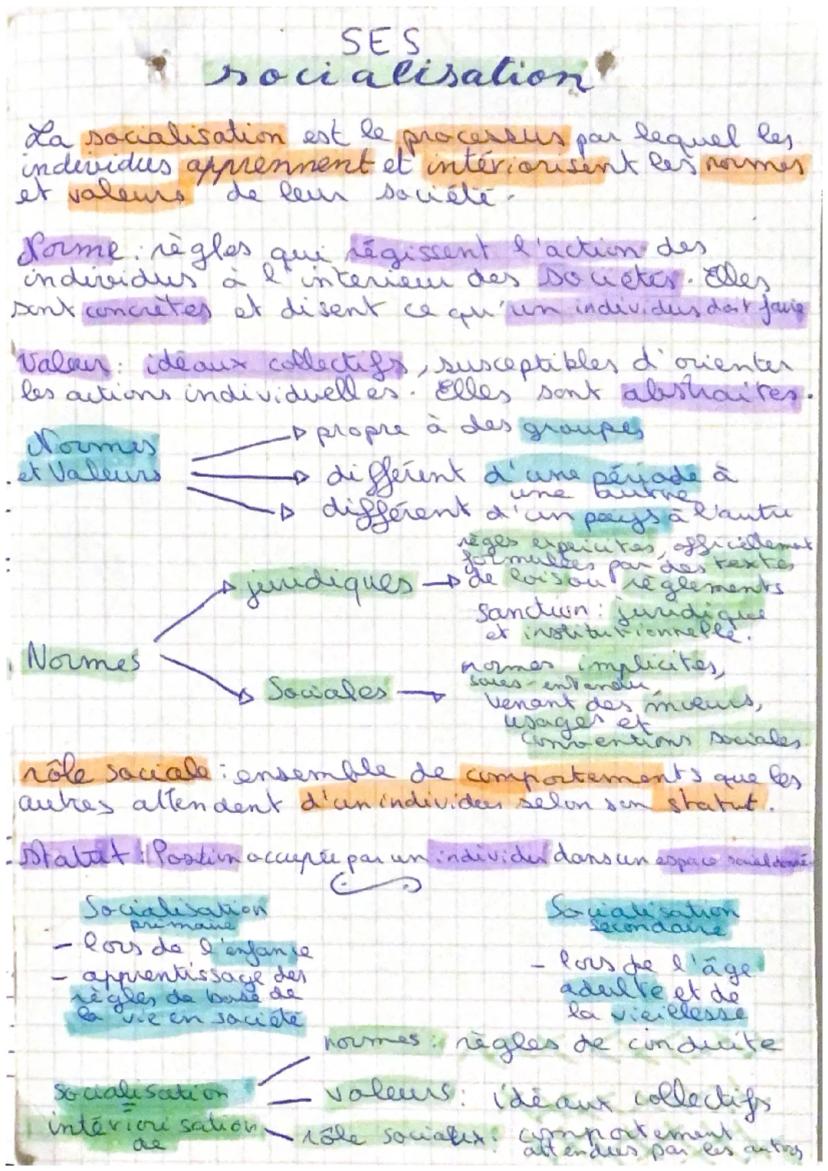 SES
socialisation
La socialisation est le processus par lequel les
individus apprennent et intériorisent les normes
et valeurs de leur société.
Norme : règles qui régissent l'action des
individus à l'intérieur des sociétés. Elles
sont concrètes et disent ce qu'un individus doit faire
Valeur : idéaux collectifs, susceptibles d'orienter
les actions individuelles. Elles sont abstraites.
Normes
et Valeurs
propre à des groupes
différent d'une période à
une autre
différent d'un pays à l'autre
Normes
juridiques
règles explicites, officiellement
formulées par des textes
de lois ou règlements
sanction : juridique
et institutionnelle.
Sociales
normes implicites,
sous-entendu,
venant des mœurs,
usages et
conventions sociales
rôle sociale : ensemble de comportements que les
autres attendent d'un individu selon son statut.
Statut : Position occupée par un individu dans un espace social donné
Socialisation
primaire
- lors de l'enfance
- apprentissage des
règles de base de
la vie en société
Socialisation
secondaire
- lors de l'âge
adulte et de
la vieillesse
socialisation
=
intériorisation
de
normes : règles de conduite
valeurs : idéaux collectifs
rôle sociaux : comportement
attendues par les autres